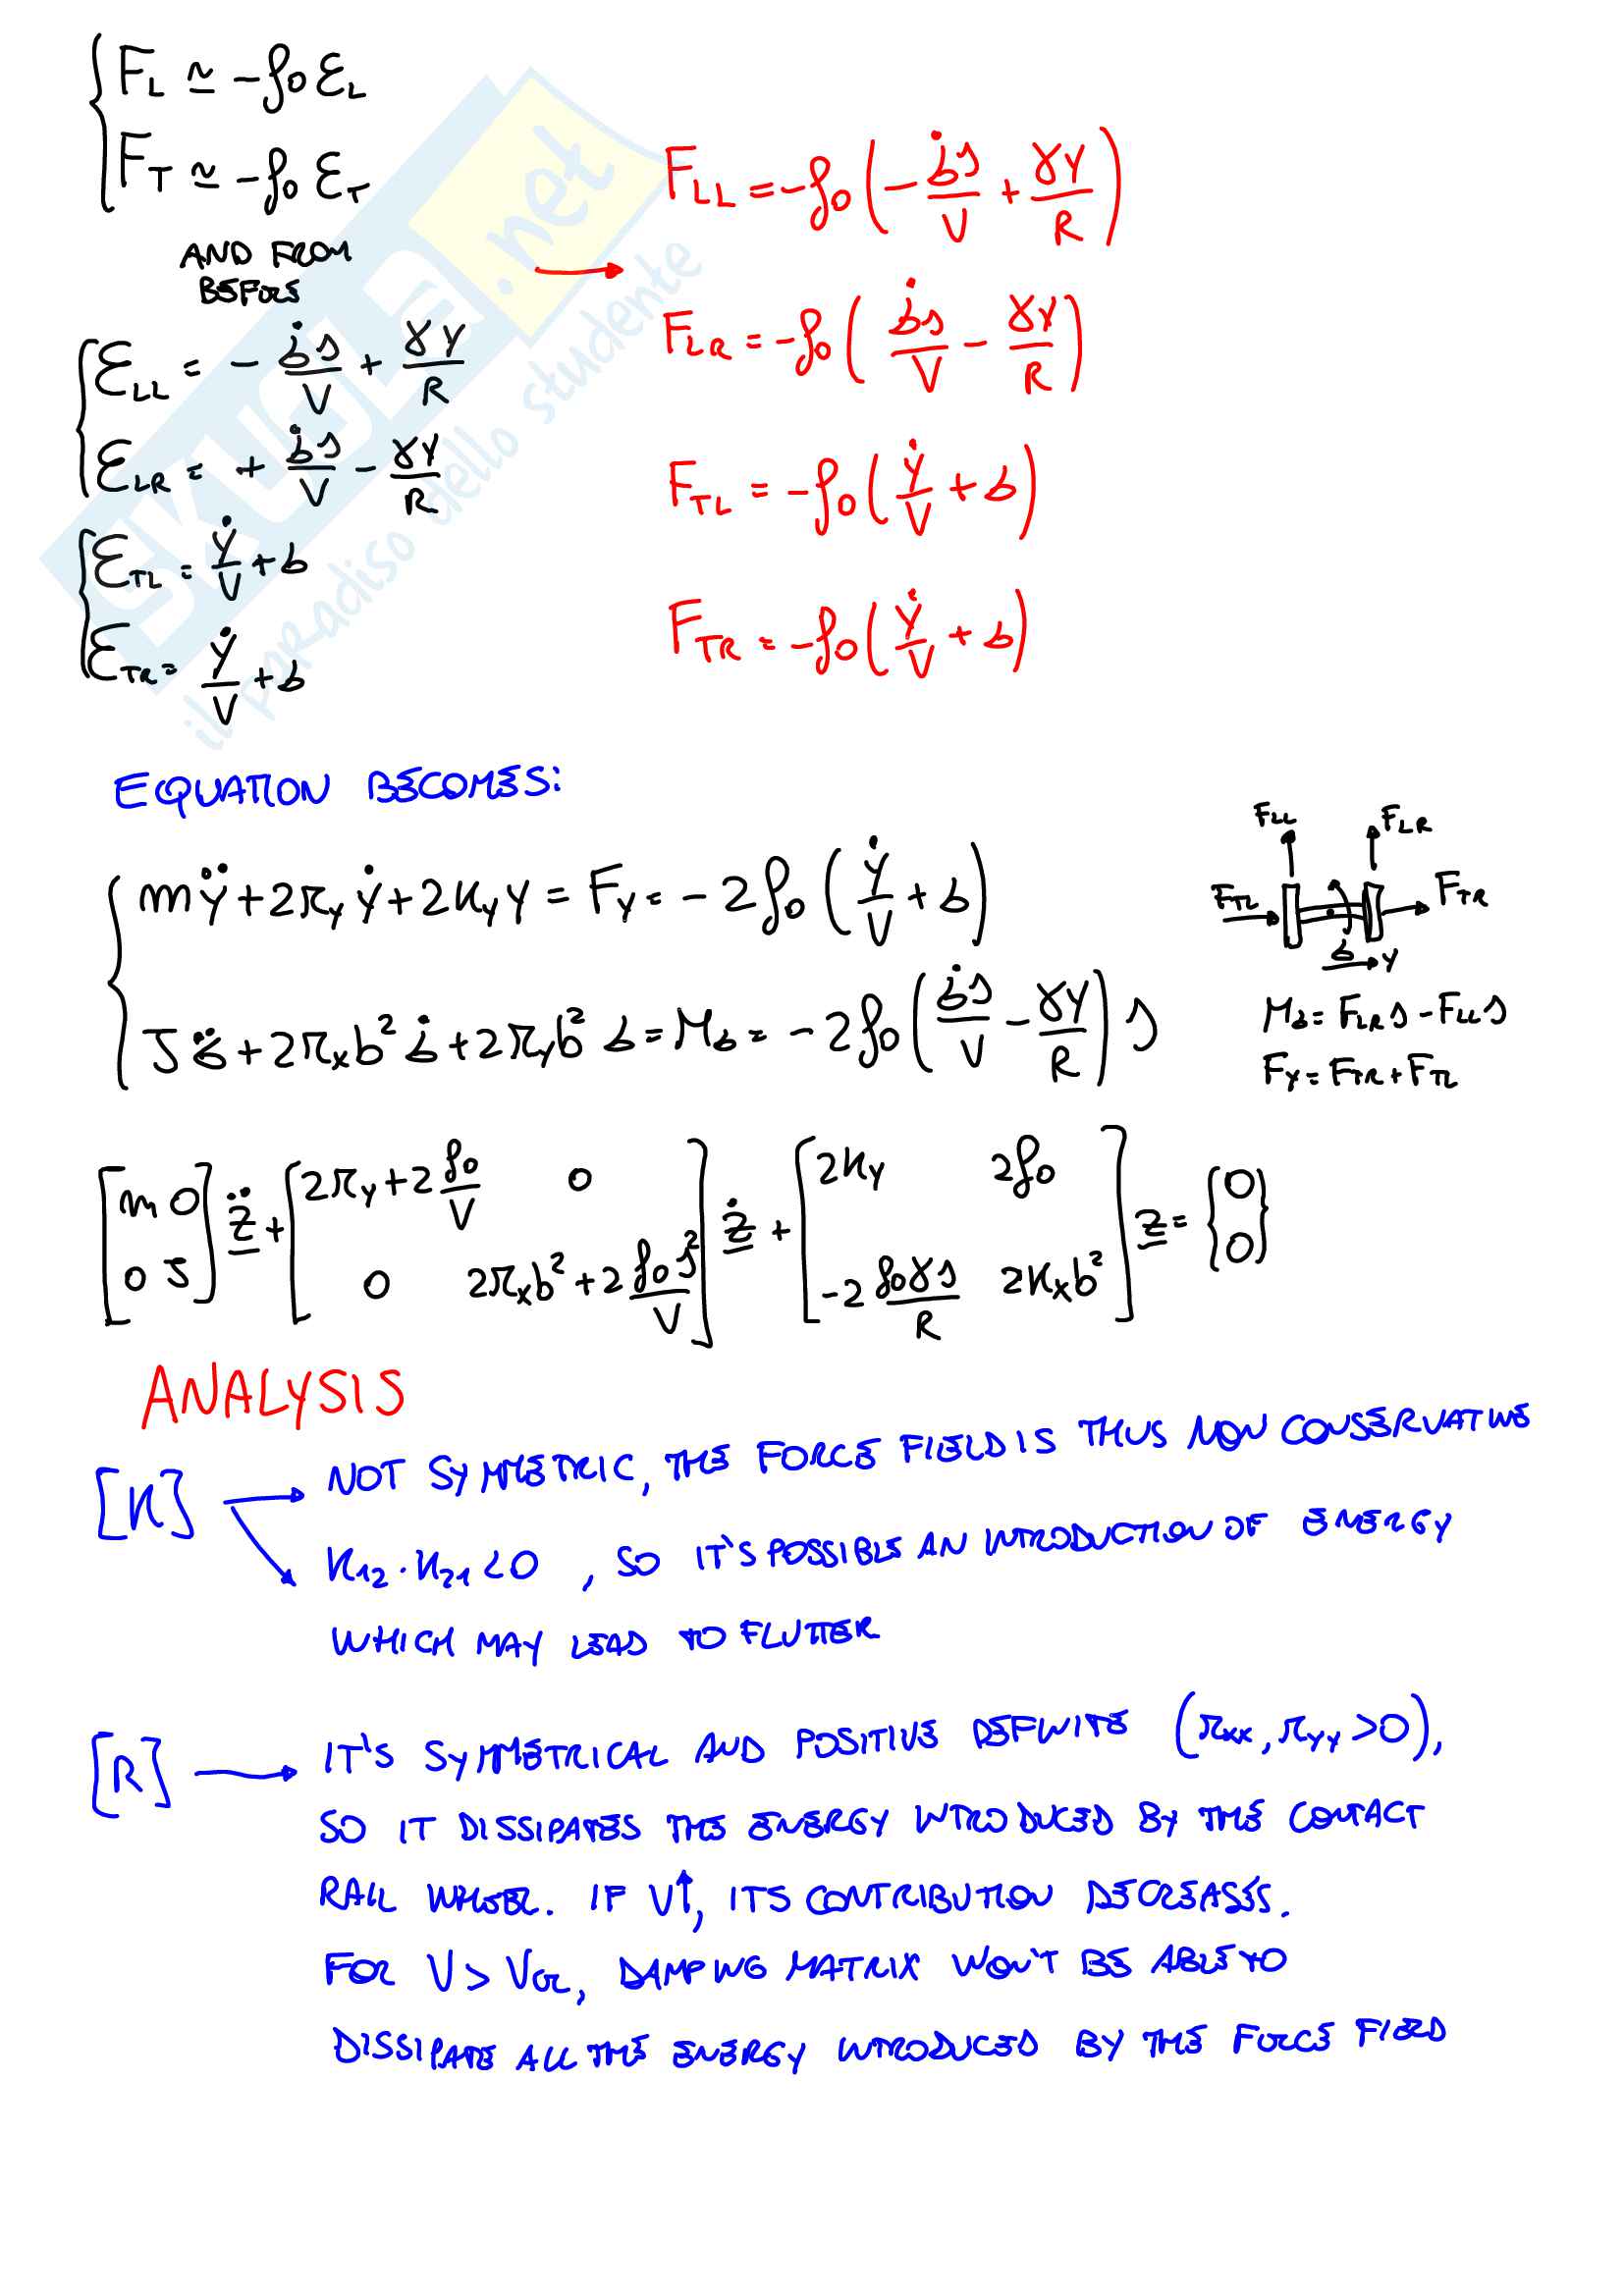 F_L ≃ -f₀ ε_L
F_T ≃ -f₀ ε_T
AND FROM
BEFORE
ε_LL = - σ̇s/V + γy/R
ε_LR = + σ̇s/V - γy/R
ε_TL = ẏ/V + σ
ε_TR = ẏ/V + σ
F_LL = -f₀ ( - σ̇s/V + γy/R )
F_LR = -f₀ ( σ̇s/V - γy/R )
F_TL = -f₀ ( ẏ/V + σ )
F_TR = -f₀ ( ẏ/V + σ )
SKUOLA.net
il paradiso dello studente
EQUATION BECOMES:
mÿ + 2r_y ẏ + 2k_y y = F_y = - 2f₀ ( ẏ/V + σ )
J σ̈ + 2r_x b² σ̇ + 2r_y b² σ = M_σ = - 2f₀ ( σ̇s/V - γy/R ) s
F_LL F_LR
F_TL F_TR
σ y
M_σ = F_LR s - F_LL s
F_y = F_TR + F_TL
[m 0; 0 J] z̈ + [2r_y + 2 f₀/V 0; 0 2r_x b² + 2 f₀s²/V] ż + [2k_y 2f₀; -2 f₀γs/R 2k_x b²] z = {0; 0}
ANALYSIS
[K] → NOT SYMMETRIC, THE FORCE FIELD IS THUS NON CONSERVATIVE
K₁₂ · K₂₁ < 0 , SO IT'S POSSIBLE AN INTRODUCTION OF ENERGY
WHICH MAY LEAD TO FLUTTER
[R] → IT'S SYMMETRICAL AND POSITIVE DEFINITE (r_xx, r_yy > 0),
SO IT DISSIPATES THE ENERGY INTRODUCED BY THE CONTACT
RAIL WHEEL. IF V↑, ITS CONTRIBUTION DECREASES.
FOR V > V_CR, DAMPING MATRIX WON'T BE ABLE TO
DISSIPATE ALL THE ENERGY INTRODUCED BY THE FORCE FIELD